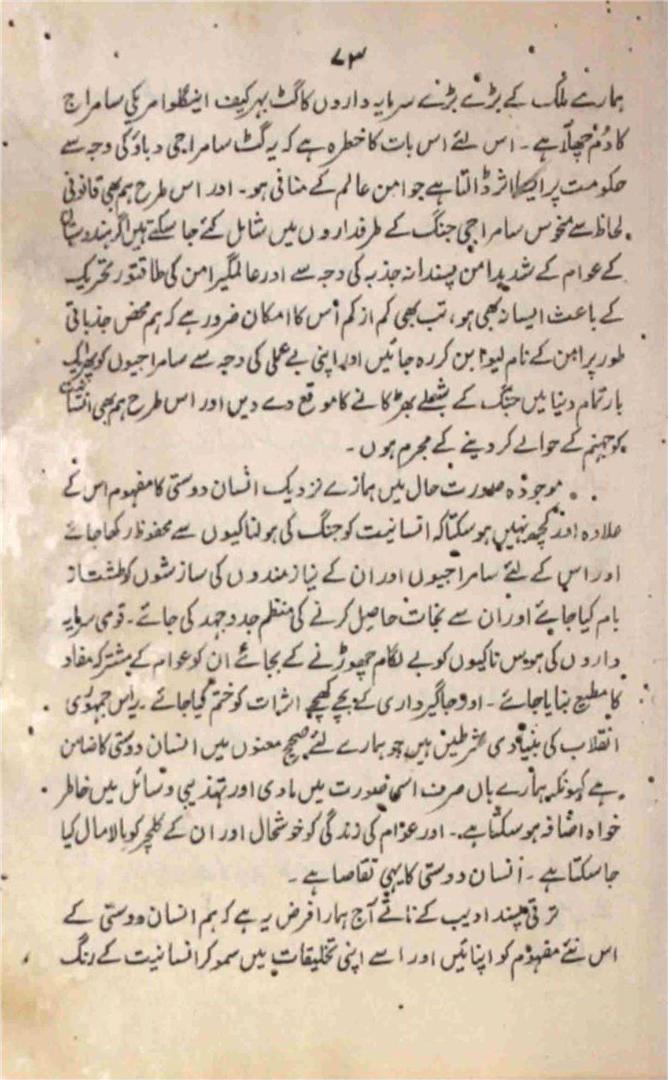 ۷۳
ہمارے ملک کے بڑے بڑے سرمایہ داروں کا گٹ بہرکیف اینگلو امریکی سامراج
کا دُم چھلّا ہے۔ اس لئے اس بات کا خطرہ ہے کہ یہ گٹ سامراجی دباؤ کی وجہ سے
حکومت پر ایسا اثر ڈالتا ہے جو امن عالم کے منافی ہو۔ اور اس طرح ہم بھی قانونی
لحاظ سے منحوس سامراجی جنگ کے طرفداروں میں شامل کئے جا سکتے ہیں اگر ہندوستان
کے عوام کے شدید امن پسندانہ جذبہ کی وجہ سے اور عالمگیر امن کی طاقتور تحریک
کے باعث ایسا نہ بھی ہو، تب بھی کم از کم اُس کا امکان ضرور ہے کہ ہم محض جذباتی
طور پر امن کے نام لیوا بن کر رہ جائیں اور اپنی بے عملی کی وجہ سے سامراجیوں کو پھر ایک
بار تمام دنیا میں جنگ کے شعلے بھڑکانے کا موقع دے دیں اور اس طرح ہم بھی انسانیت
کو جہنم کے حوالے کر دینے کے مجرم ہوں۔
موجودہ صورت حال میں ہمارے نزدیک انسان دوستی کا مفہوم اس کے
علاوہ اور کچھ نہیں ہو سکتا کہ انسانیت کو جنگ کی ہولناکیوں سے محفوظ رکھا جائے
اور اس کے لئے سامراجیوں اور ان کے نیاز مندوں کی سازشوں کو طشت از
بام کیا جائے اور ان سے نجات حاصل کرنے کی منظم جدوجہد کی جائے۔ قومی سرمایہ
داروں کی ہوس ناکیوں کو بے لگام چھوڑنے کے بجائے ان کو عوام کے مشترکہ مفاد
کا مطیع بنایا جائے۔ اور جاگیرداری کے بچے کھچے اثرات کو ختم کیا جائے۔ جمہوری
انقلاب کی بنیادی شرطیں ہیں جو ہمارے لئے صحیح معنوں میں انسان دوستی کا ضامن
ہے کیونکہ ہمارے ہاں صرف اسی صورت میں مادی اور تہذیبی وسائل میں خاطر
خواہ اضافہ ہو سکتا ہے۔ اور عوام کی زندگی کو خوشحال اور ان کے کلچر کو مالا مال کیا
جا سکتا ہے۔ انسان دوستی کا یہی تقاضا ہے۔
ترقی پسند ادیب کے ناتے آج ہمارا فرض یہ ہے کہ ہم انسان دوستی کے
اس نئے مفہوم کو اپنائیں اور اسے اپنی تخلیقات میں سمو کر انسانیت کے رنگ